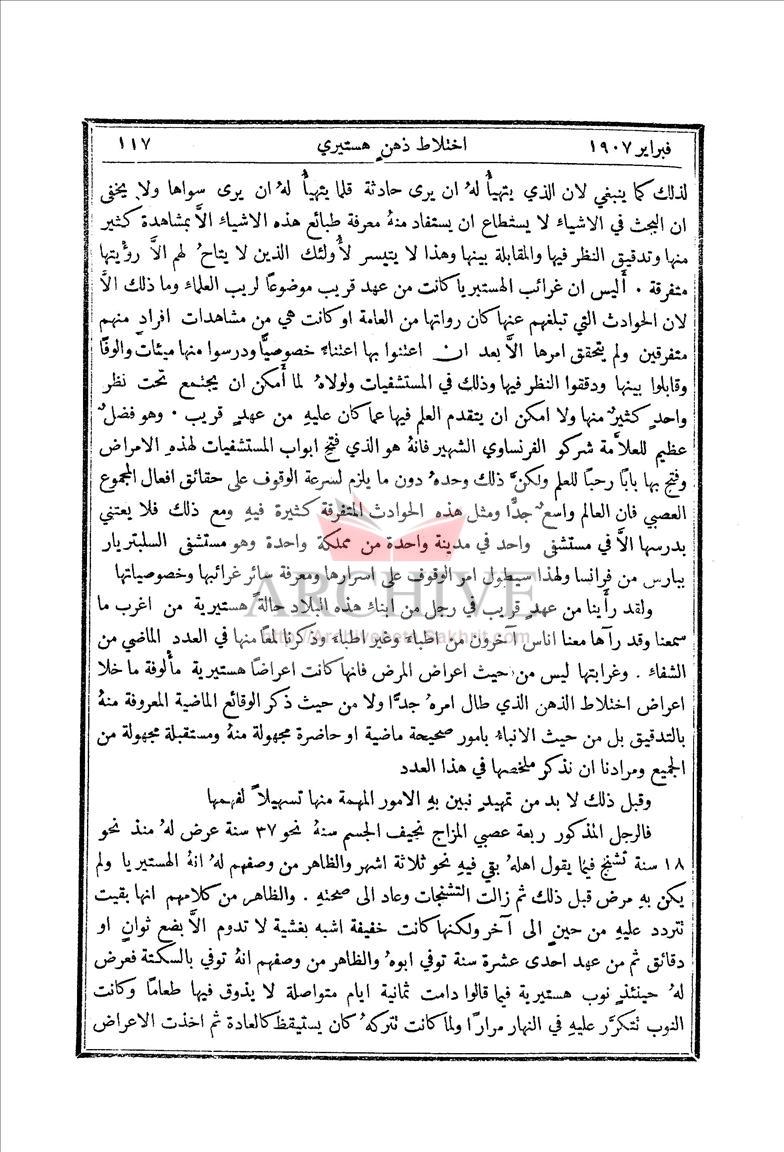 فبراير ١٩٠٧ اختلاط ذهنٍ هستيري ١١٧
لذلك كما ينبغي لان الذي يتهيأُ لهُ ان يرى حادثة قلما يتهيأُ لهُ ان يرى سواها ولا يخفى
ان البحث في الاشياء لا يستطاع ان يستفاد منهُ معرفة طبائع هذه الاشياء الاَّ بمشاهدة كثير
منها وتدقيق النظر فيها والمقابلة بينها وهذا لا يتيسر لأُولئك الذين لا يتاحُ لهم الاَّ رؤيتها
متفرقة . أَليس ان غرائب الهستيريا كانت من عهد قريب موضوعًا لريب العلماء وما ذلك الاَّ
لان الحوادث التي تبلغهم عنها كان رواتها من العامة او كانت هي من مشاهدات افرادٍ منهم
متفرقين ولم يتحقق امرها الاَّ بعد ان اعتنوا بها اعتناءً خصوصيًّا ودرسوا منها مئات والوفًا
وقابلوا بينها ودققوا النظر فيها وذلك في المستشفيات ولولاهُ لما أَمكن ان يجتمع تحت نظر
واحدٍ كثيرٌ منها ولا امكن ان يتقدم العلم فيها عما كان عليهِ من عهدٍ قريب . وهو فضلٌ
عظيم للعلاَّمة شركو الفرنساوي الشهير فانهُ هو الذي فتح ابواب المستشفيات لهذهِ الامراض
وفتح بها بابًا رحبًا للعلم ولكنَّ ذلك وحدهُ دون ما يلزم لسرعة الوقوف على حقائق افعال المجموع
العصبي فان العالم واسعٌ جدًّا ومثل هذه الحوادث المتفرقة كثيرة فيهِ ومع ذلك فلا يعتني
بدرسها الاَّ في مستشفى واحد في مدينة واحدة من مملكة واحدة وهو مستشفى السلبتريار
ببارس من فرانسا ولهذا سيطول امر الوقوف على اسرارها ومعرفة سائر غرائبها وخصوصياتها
ولقد رأينا من عهدٍ قريب في رجل من ابناءِ هذه البلاد حالةً هستيرية من اغرب ما
سمعنا وقد رآها معنا اناس آخرون من اطباء وغير اطباء وذكرنا لمعًا منها في العدد الماضي من
الشفاء . وغرابتها ليس من حيث اعراض المرض فانها كانت اعراضًا هستيرية مألوفة ما خلا
اعراض اختلاط الذهن الذي طال امرهُ جدًّا ولا من حيث ذكر الوقائع الماضية المعروفة منهُ
بالتدقيق بل من حيث الانباءُ بامور صحيحة ماضية او حاضرة مجهولة منهُ ومستقبلة مجهولة من
الجميع ومرادنا ان نذكر ملخصها في هذا العدد
وقبل ذلك لا بد من تمهيدٍ نبين بهِ الامور المهمة منها تسهيلاً لفهمها
فالرجل المذكور ربعة عصبي المزاج نحيف الجسم سنهُ نحو ٣٧ سنة عرض لهُ منذ نحو
١٨ سنة تشنج فيما يقول اهلهُ بقي فيهِ نحو ثلاثة اشهر والظاهر من وصفهم لهُ انهُ الهستيريا ولم
يكن بهِ مرض قبل ذلك ثم زالت التشنجات وعاد الى صحتهِ . والظاهر من كلامهم انها بقيت
تتردد عليهِ من حينٍ الى آخر ولكنها كانت خفيفة اشبه بغشية لا تدوم الاَّ بضع ثوانٍ او
دقائق ثم من عهد احدى عشرة سنة توفي ابوهُ والظاهر من وصفهم انهُ توفي بالسكتة فعرض
لهُ حينئذٍ نوب هستيرية فيما قالوا دامت ثمانية ايام متواصلة لا يذوق فيها طعامًا وكانت
النوب تتكرَّر عليهِ في النهار مرارًا ولما كانت تتركهُ كان يستيقظ كالعادة ثم اخذت الاعراض
ARCHIVE